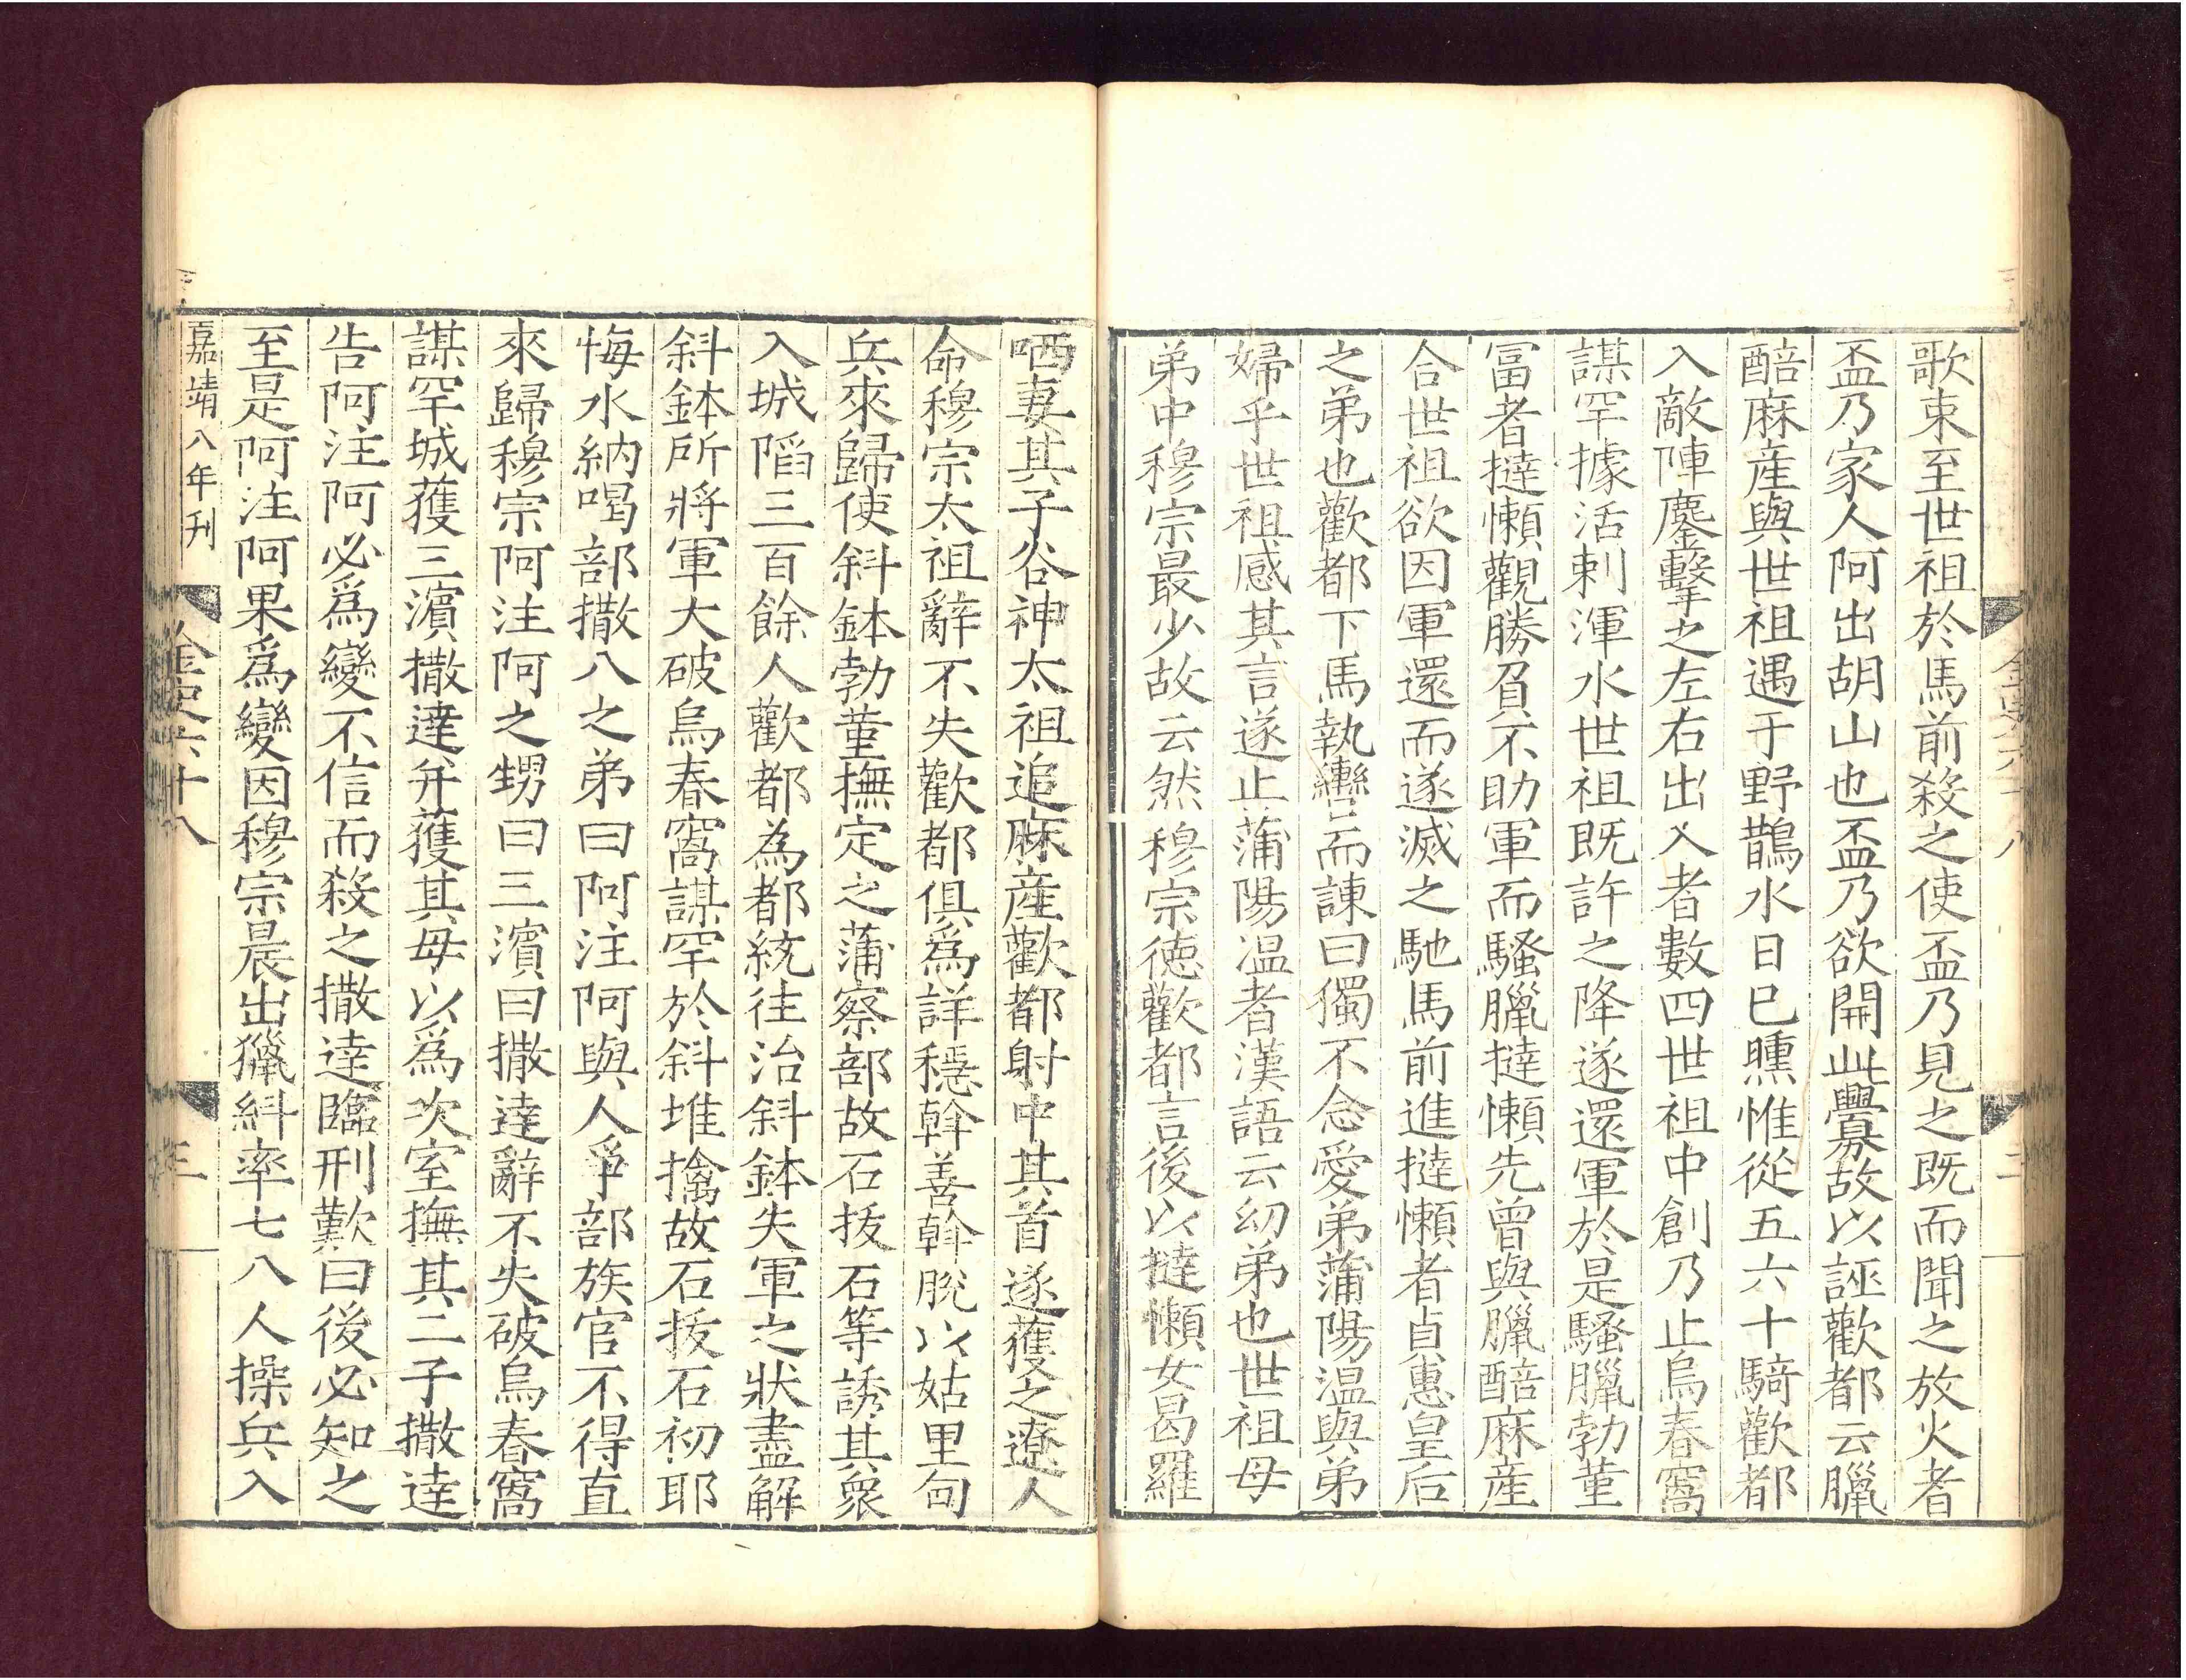 歌束至世祖於馬前殺之使盃乃見之既而聞之放火者
盃乃家人阿出胡山也盃乃欲開此釁故以誣歡都云臘
醅麻産與世祖遇于野鵲水日已曛惟從五六十騎歡都
入敵陣鏖擊之左右出入者數四世祖中創乃止烏春窩
謀罕據活剌渾水世祖既許之降遂還軍於是騷臘勃堇
富者撻懶觀勝負不助軍而騷臘撻懶先曾與臘醅麻産
合世祖欲因軍還而遂滅之馳馬前進撻懶者貞惠皇后
之弟也歡都下馬執轡而諫曰獨不念愛弟蒲陽温與弟
婦乎世祖感其言遂止蒲陽温者漢語云幼弟也世祖母
弟中穆宗最少故云然穆宗德歡都言後以撻懶女曷羅
哂妻其子谷神太祖追麻産歡都射中其首遂獲之遼人
命穆宗太祖辭不失歡都俱爲詳穩斡善斡脫以姑里甸
兵來歸使斜鉢勃堇撫定之蒲察部故石拔石等誘其衆
入城陷三百餘人歡都為都統往治斜鉢失軍之狀盡解
斜鉢所將軍大破烏春窩謀罕於斜堆擒故石拔石初耶
悔水納喝部撒八之弟曰阿注阿與人爭部族官不得直
來歸穆宗阿注阿之甥曰三濱曰撒達辭不失破烏春窩
謀罕城獲三濱撒達并獲其母以爲次室撫其二子撒達
告阿注阿必爲變不信而殺之撒達臨刑歎曰後必知之
至是阿注阿果爲變因穆宗晨出獵糾率七八人操兵入
嘉靖八年刊
金史六十八
三